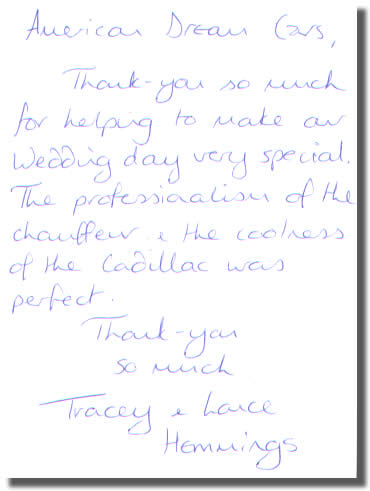 American Dream Cars,
Thank-you so much
for helping to make our
Wedding day very special.
The professionalism of the
chauffeur & the coolness
of the Cadillac was
perfect.
Thank-you
so much
Tracey & Lance
Hemmings